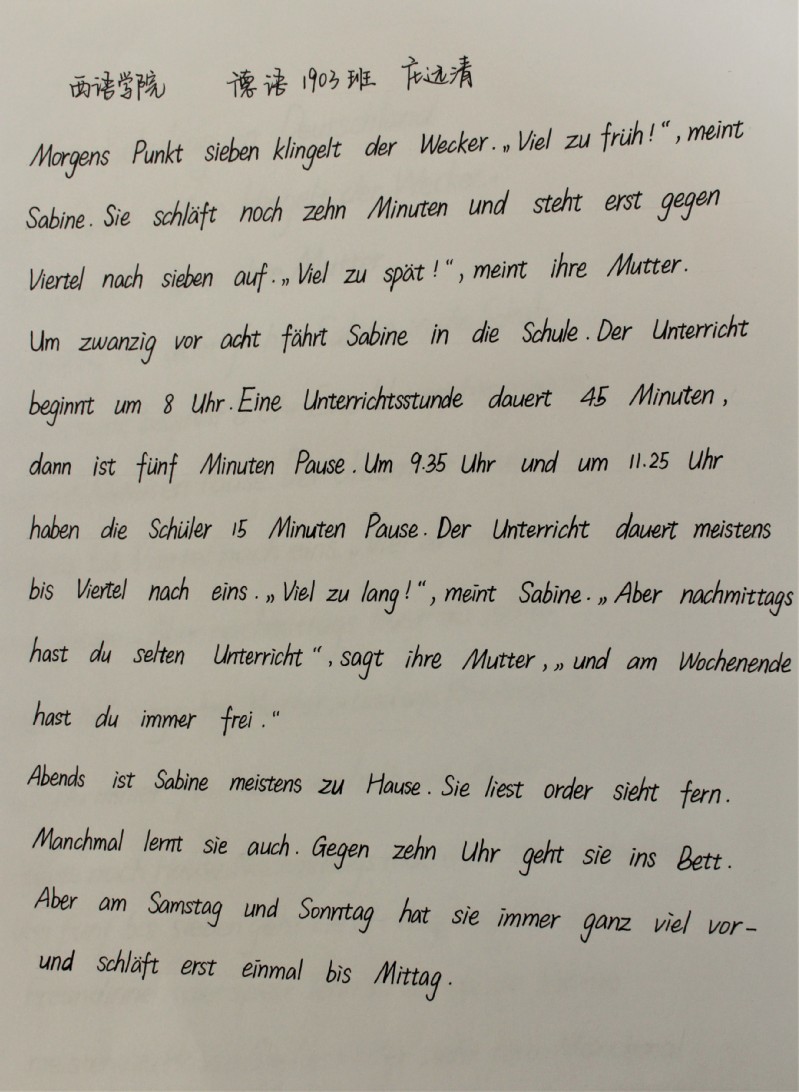 西语学院 德语1903班 庄远清
Morgens Punkt sieben klingelt der Wecker. „Viel zu früh!“, meint
Sabine. Sie schläft noch zehn Minuten und steht erst gegen
Viertel nach sieben auf. „Viel zu spät!“, meint ihre Mutter.
Um zwanzig vor acht fährt Sabine in die Schule. Der Unterricht
beginnt um 8 Uhr. Eine Unterrichtsstunde dauert 45 Minuten,
dann ist fünf Minuten Pause. Um 9.35 Uhr und um 11.25 Uhr
haben die Schüler 15 Minuten Pause. Der Unterricht dauert meistens
bis Viertel nach eins. „Viel zu lang!“, meint Sabine. „Aber nachmittags
hast du selten Unterricht“, sagt ihre Mutter, „und am Wochenende
hast du immer frei.“
Abends ist Sabine meistens zu Hause. Sie liest order sieht fern.
Manchmal lernt sie auch. Gegen zehn Uhr geht sie ins Bett.
Aber am Samstag und Sonntag hat sie immer ganz viel vor-
und schläft erst einmal bis Mittag.